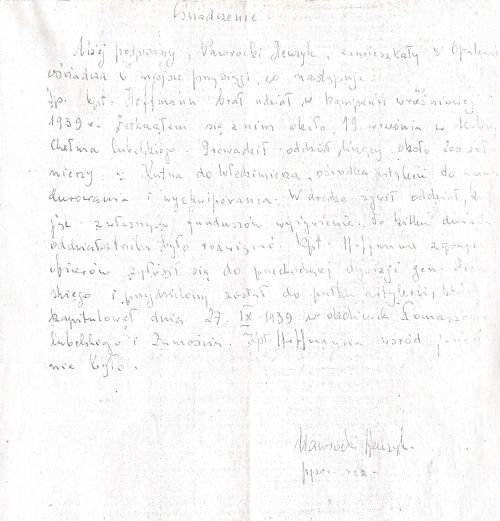 Oświadczenie
Niżej podpisany, Nawrocki Henryk, zamieszkały w Opalenicy
oświadcza w miejsce przysięgi, co następuje:
Śp. kpt. Hoffmann brał udział w kampanii wrześniowej
1939 r. Zetknąłem się z nim około 19. września w okolicy
Chełma Lubelskiego. Prowadził oddział, liczący około 200 żoł-
nierzy z Kutna do Włodzimierza, ośrodka artylerii do
durowania i wyekwipowania. W drodze żywił oddział,
z własnych funduszów wyżywienie. Po kilku dniach
oddział było rozwiązać. Kpt. Hoffmann z grupą
oficerów zgłosił się do przechodzącej dywizji gen.
skiego i przydzielony został do pułku artylerii,
kapitulował dnia 27. IX 1939 w okolicach
Lubelskiego i Zamościa. Kpt. Hoffmanna wśród
nie było.
Nawrocki Henryk
ppor. rez.